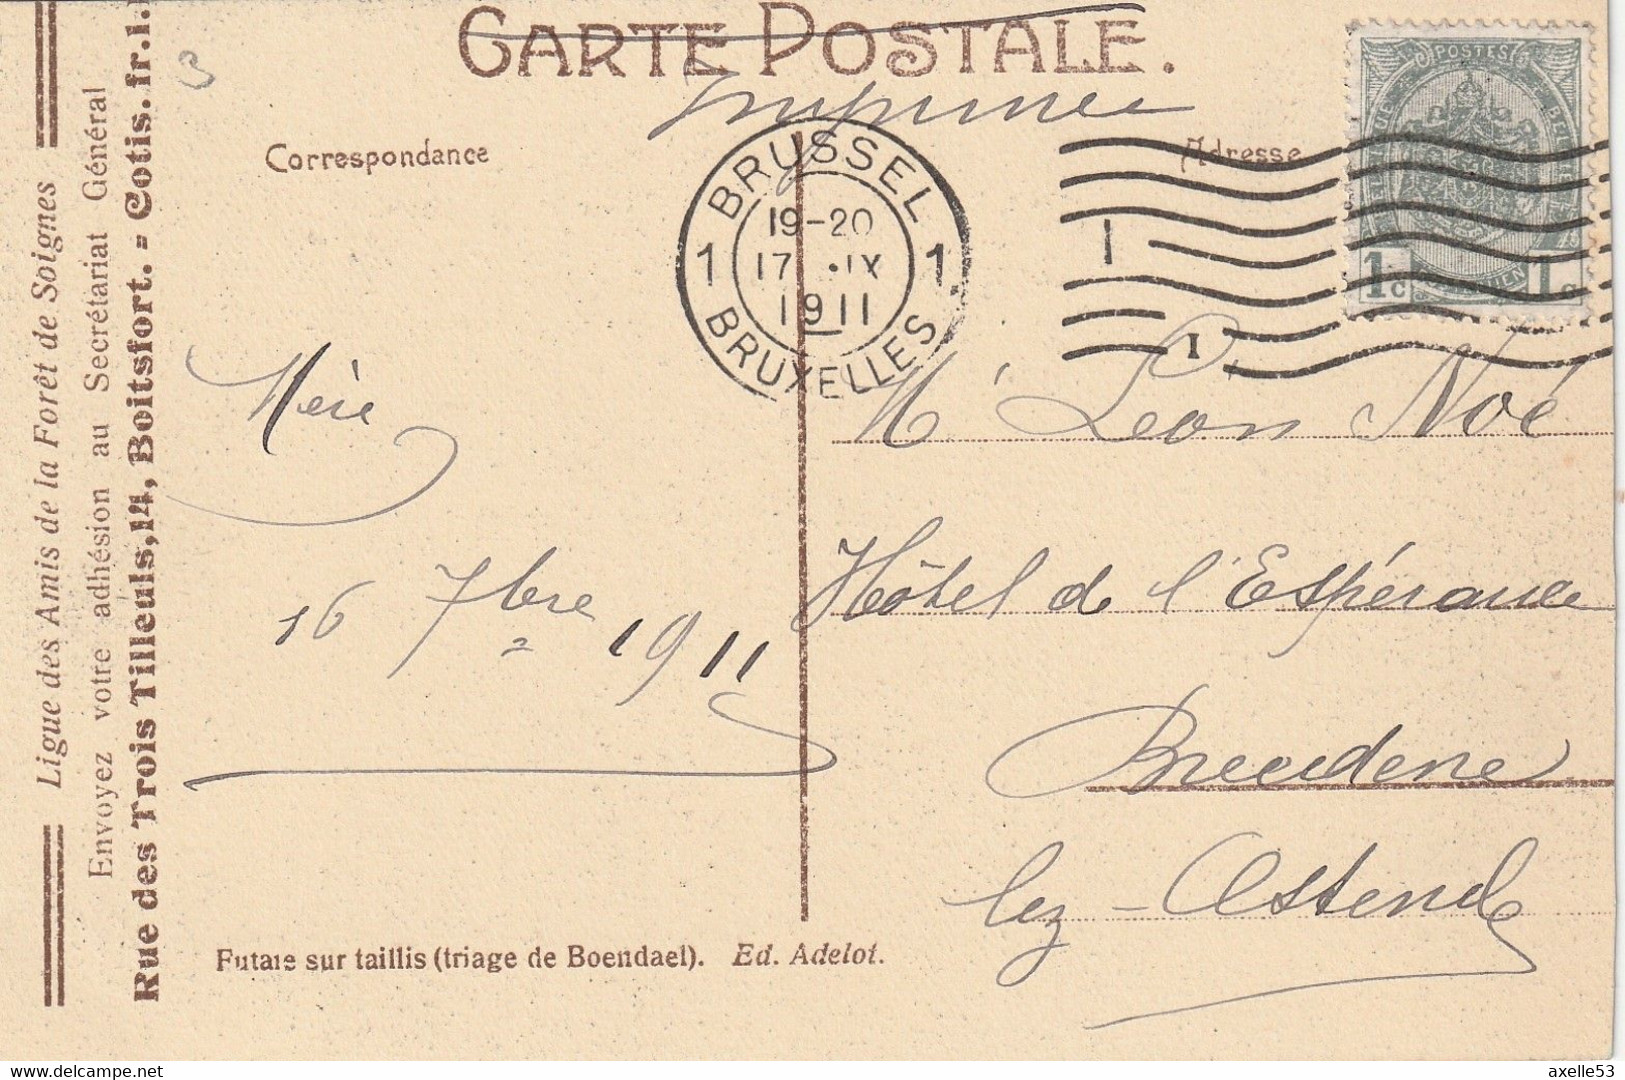 CARTE POSTALE.
Imprimée
Correspondance
Adresse
3
BRUSSEL
1 19-20 1
17 IX
1911
BRUXELLES
1
1
POSTES
1c 1c
Mère
16 7bre 1911
Mr Léon Noé
Hôtel de l'Espérance
Breedene
lez-Ostende
Futaie sur taillis (triage de Boendael). Ed. Adelot.
Ligue des Amis de la Forêt de Soignes
Envoyez votre adhésion au Secrétariat Général
Rue des Trois Tilleuls, 14, Boitsfort. = Cotis. fr. 1.
Delcampe.net
axelle53